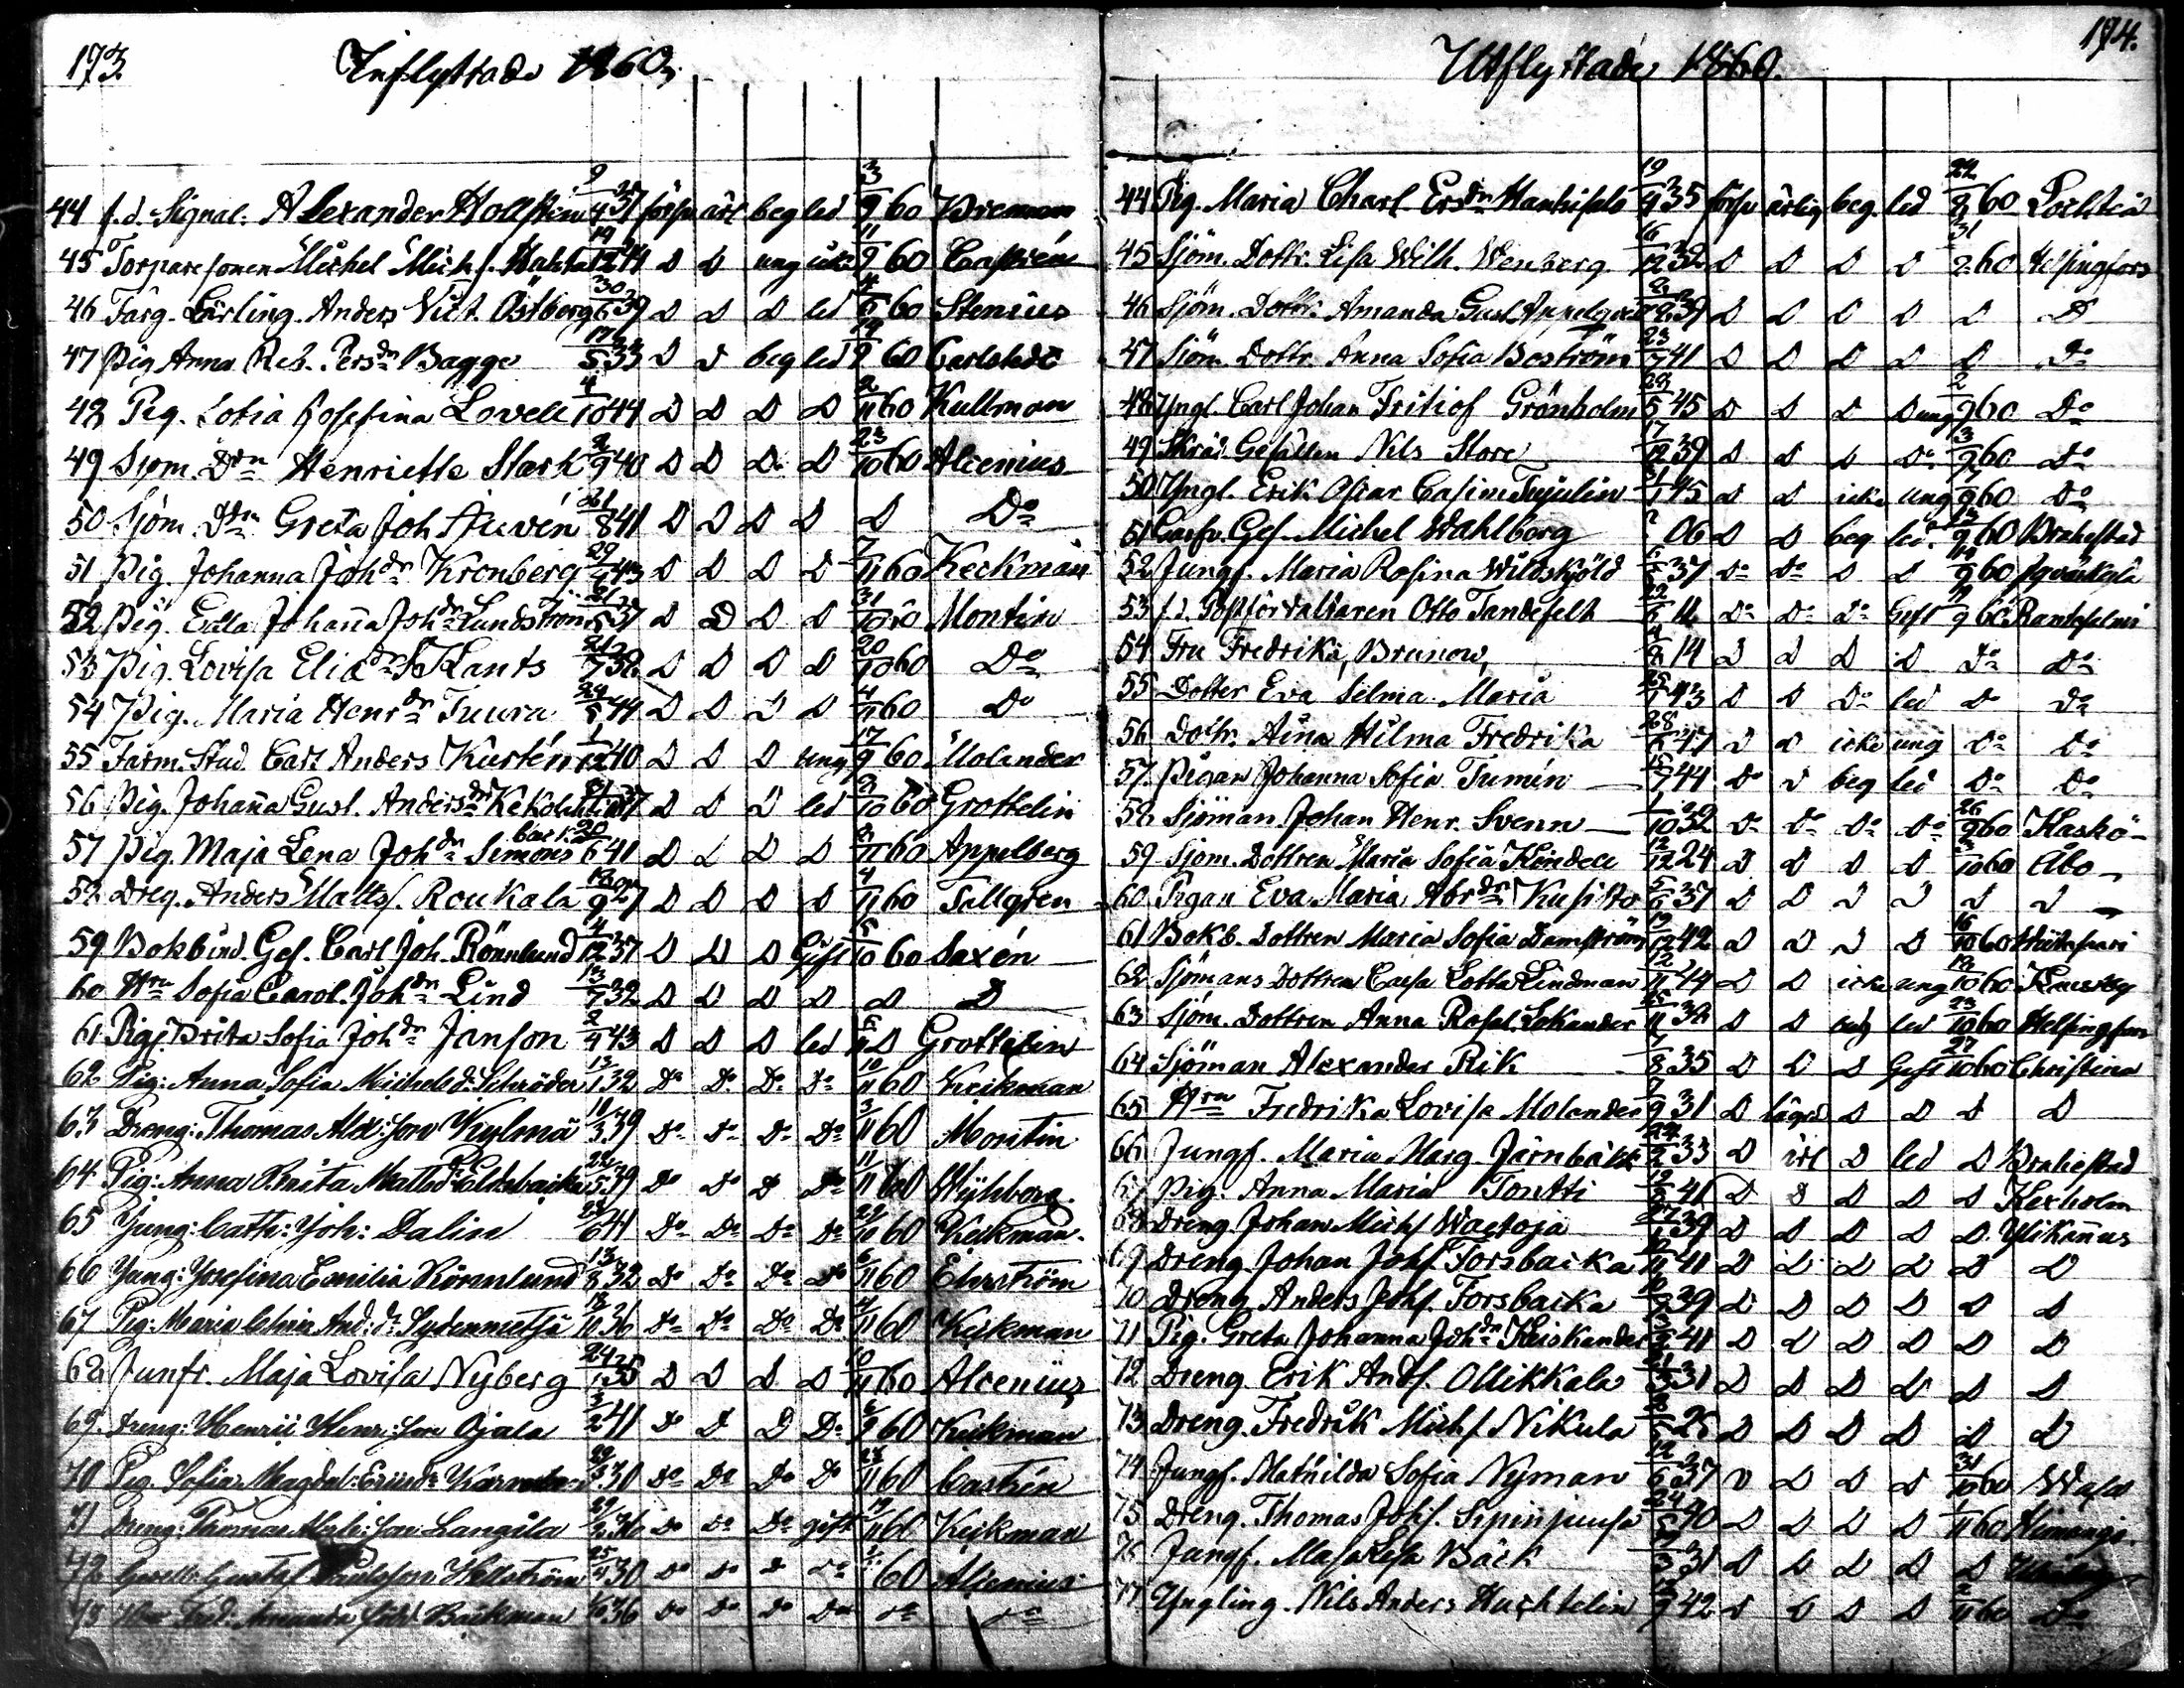 173. Inflyttade 1860.
44 f.d. Signal. Alexander Hollstein 9/4 37 försv ärl beg led 3/9 60 Bremom
45 Torpare sonen Michel Mich.s. Hahka 19/12 44 D D ung icke 11/9 60 Castrén
46 Färg. Lärling. Anders Vict. Östberg 30/6 39 D D D led 4/6 60 Stenius
47 Pig Anna Reb. Persdr Bagge 17/5 33 D D beg led 19/9 60 Carlstedt
48 Pig. Sofia Josefina Lovell 4/10 44 D D D D 2/11 60 Kullman
49 Sjöm. Dtrn Henriette Stark 2/9 40 D D D D 23/10 60 Alcenius
50 Sjöm. Dtrn Greta Joh Auvén 21/8 41 D D D D D Do
51 Pig. Johanna Johdr Kronberg 29/4 43 D D D D 7/11 60 Keckman
52 Pig. Edla Johanna Johdr Lundström 21/5 37 D D D D 31/10 60 Montin
53 Pig. Lovisa Eliadr Klants 21/7 38 D D D D 20/10 60 Do
54 Pig. Maria Henrdr Tuura 29/5 44 D D D D 4/11 60 Do
55 Farm. Stud. Carl Anders Kurtén 1/12 40 D D D ung 17/9 60 Molander
56 Pig. Johanna Gust. Andersdr Kekolahti 37 D D D led 2/10 60 Grottelin
57 Pig. Maja Lena Johdr Simonsbacka 20/6 41 D D D D 8/11 60 Appelberg
58 Dreg. Anders Matts. Roukala 18/9 27 D D D D 4/11 60 Tallgren
59 Bokbind. Ges. Carl Joh. Rönnlund 4/12 37 D D D Gift 5/10 60 Saxén
60 Hru Sofia Carol. Johdr Lind 13/7 32 D D D D D D
61 Pig. Brita Sofia Johdr Janson 2/4 43 D D D led 6/11 D Grottelin
62 Pig: Anna Sofia Michelsdr Schröder 13/1 32 Do Do Do Do 10/11 60 Keikman
63 Dreng: Thomas Alex:son Kylmä 10/3 39 Do Do Do Do 3/11 60 Montin
64 Pig: Anna Brita Mattsdr Eldsbacka 22/5 39 Do Do D Do 11/11 60 Nyhborg.
65 Jung: Cath: Joh: Dalin 22/6 41 Do Do Do Do 29/10 60 Keikman.
66 Jung: Josefina Emilia Rönnlund 13/8 32 Do Do Do Do 6/11 60 Ehrström
67 Pig: Maria And: dr Sydenmetsä 18/10 36 Do Do Do Do 4/11 60 Keikman
68 Junfr. Maja Lovisa Nyberg 24/1 35 D D D D 10/11 60 Alcenius
69. Dreng: Henric Henr:son Ojala 3/2 41 Do D D Do 60 Keikman
70 Pig. Sofia Magdal: 29/3 30 Do Do Do Do 28/11 60 Castrén
71 Dreng: Thomas Langila 36 Do Do Do gift 19/11 60 Keikman
72 Gesell. Gustaf Hellström 25/ 30 Do Do D Do 60 Alcenius
73 Amanda Backman 36 Do Do Do Do Do Do
Utflyttade 1860. 174.
44 Pig. Maria Charl. Ersdr Hankisalo 19/9 35 försv ärlig beg. led 24/8 60 Lochteå
45 Sjöm. Dottr. Lisa Wilh. Wenberg 16/12 32 D D D D 31/8 60 Helsingfors
46 Sjöm. Dottr. Amanda Gust. Appelqvist 39 D D D D D D
47 Sjöm. Dottr. Anna Sofia Boström 23/7 41 D D D D D Do
48 Yngl. Carl Johan Fritiof Grönholm 29/5 45 D D D D ung 2/9 60 Do
49 Skräd. Gesällen Nils Store 17/12 39 D D D Do 3/9 60 Do
50 Yngl. Erik Oscar Casim Tujulin 21/1 45 D D icke ung 9 60 Do
51 Garfv. Ges. Michel Wahlberg ? 06 D D beg led 9 60 Brahestad
52 Jungf. Maria Rosina Wildskjöld 37 Do Do D D 9 60 Jyväskylä
53 f.d. Postförvaltaren Otto Tandefelt 22/6 11 Do Do Do Gift 9 60 Rantasalmi
54 Fru Fredrika Brunow 14 D D D D Do Do
55 Dotter Eva Selma Maria 43 D D Do led Do Do
56 Dottr. Aina Hilma Fredrika 28/6 47 D D icke ung Do Do
57. Pigan Johanna Sofia Tumén 15/7 44 Do D beg led Do Do
58 Sjöman Johan Henr. Svenn 1/10 32 Do Do Do Do 26/9 60 Kaskö
59 Sjöm. Dottren Maria Sofia Kindell 12/12 24 D D D D 10 60 Åbo
60 Pigan Eva Maria Abrdr Kusisto 5/6 37 D D D D D D
61 Bokb. Dottren Maria Sofia Damström 19/12 42 D D D D 16/10 60
62 Sjömans Dottren Caisa Lotta Lindman 12/11 44 D D icke ung 19/10 60 Kelviå
63 Sjöm. Dottren Anna Rosal. Lekander 25/11 32 D D beg led 23/10 60 Helsingfors
64 Sjöman Alexander Rik 8 35 D D D Gift 27/10 60 Christina
65 Hru Fredrika Lovisa Molander 7/9 31 D lägrd D D D D
66 Jungf. Maria Marg. Järnbäck 24/2 33 D ärl D led D Brahestad
67 Pig. Anna Maria Tontti 41 D D D D D Kexholm
68 Dreng Johan Michs Waetoja 39 D D D D D Ylikannus
69 Dreng Johan Johs. Forsbacka 11 41 D D D D D D
70 Dreng Anders Johs. Forsbacka 39 D D D D D D
71 Pig. Greta Johanna Johdr Keiskander 41 D D D D D D
72 Dreng. Erik Ands. Ollikkala 31 D D D D D D
73 Dreng. Fredrik Michs Nikula 26 D D D D D D
74 Jungf. Mathilda Sofia Nyman 12/6 37 D D D D 31/10 60 Wasa
75 Dreng. Thomas Johs. 40 D D D D 1/11 60 Himango.
76 Jungf. Maja Lisa Bäck 3 31 D D D D D
77 Yngling. Nils Anders Huchtelin 9 42 D D D D 2/11 60 Do